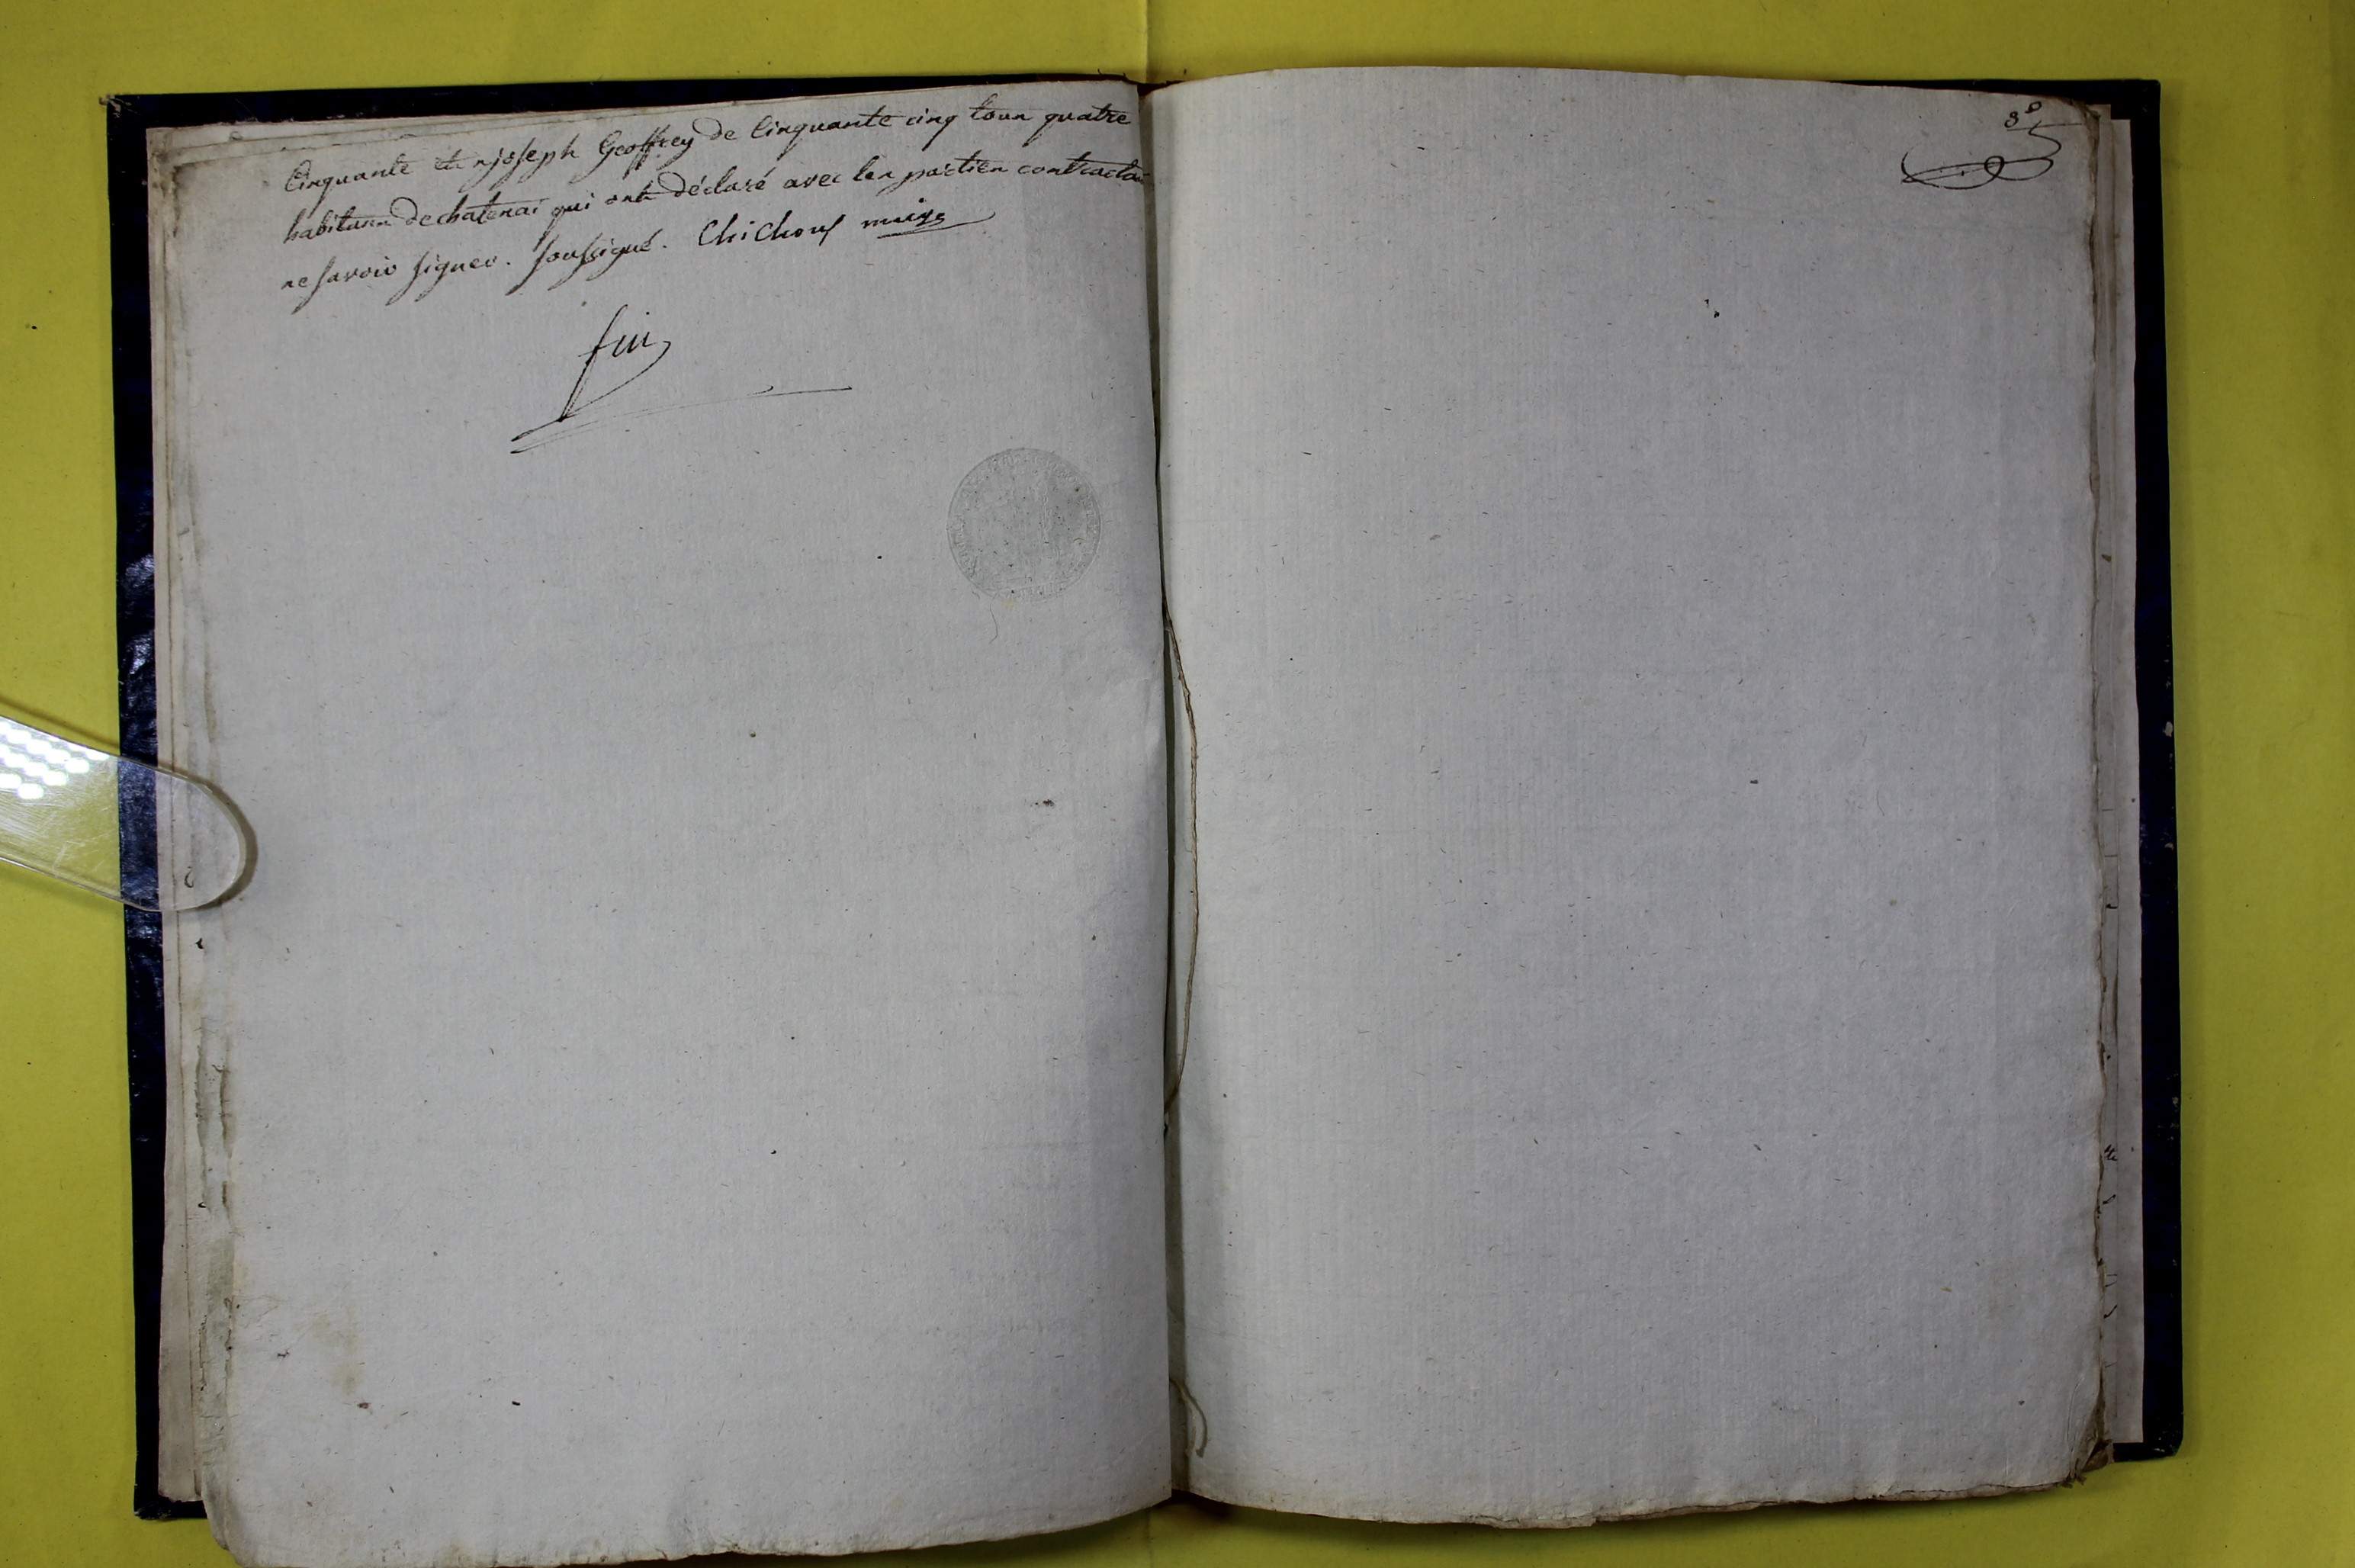 Cinquante et njoseph Geoffrey de Cinquante cinq tous quatre
habitans de chatenai qui ont déclaré avec les parties contractan
ne savoir signer. soussigné. Chichouf maire
fin
8e